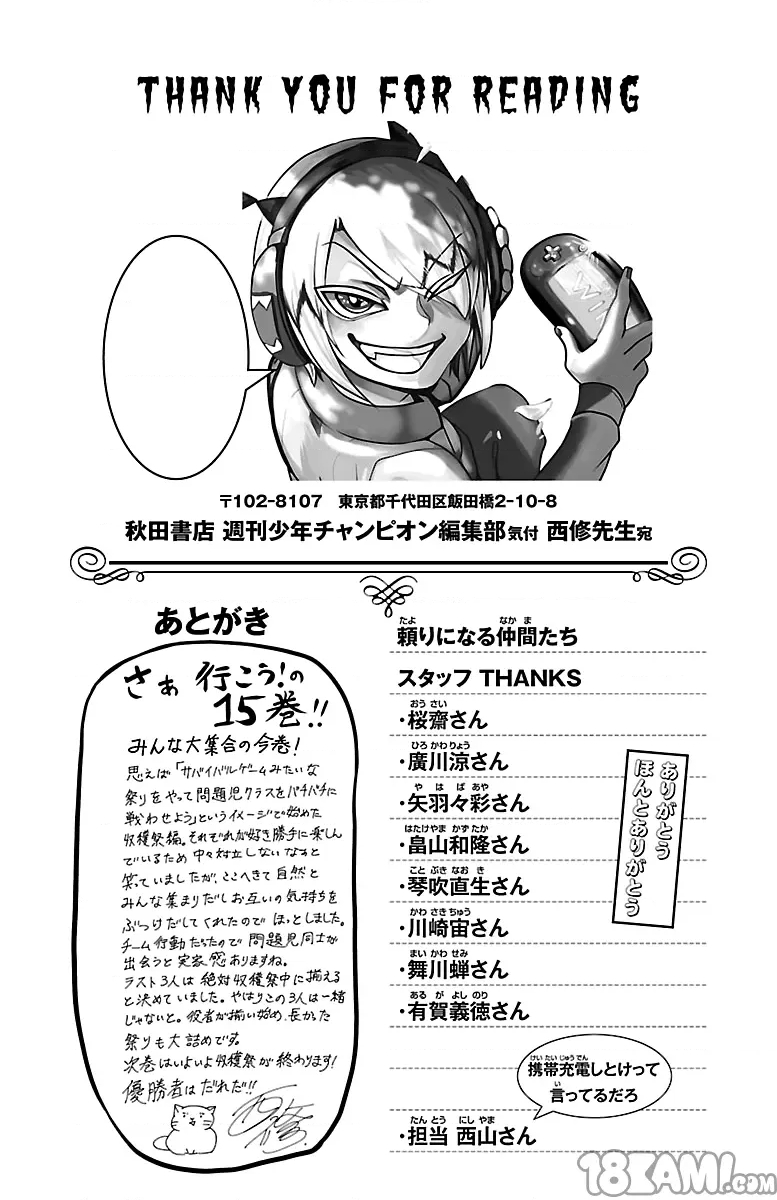 THANK YOU FOR READING
Win
〒102-8107 東京都千代田区飯田橋2-10-8
秋田書店 週刊少年チャンピオン編集部気付 西修先生宛
あとがき
さぁ 行こう!の
15巻!!
みんな大集合の今巻!
思えば「サバイバルゲームみたいな
祭りをやって問題児クラスをバチバチに
戦わせよう」というイメージで始めた
収穫祭編。それぞれが好き勝手に楽しん
でいるため中々対立しないなぁと
笑っていましたが、ここへきて自然と
みんな集まりだしお互いの気持ちを
ぶつけだしてくれたのでほっとしました。
チーム行動だったので問題児同士が
出会うと実家感ありますね。
ラスト3人は絶対収穫祭中に揃える
と決めていました。やはりこの3人は一緒
じゃないと。役者が揃い始め、長かった
祭りも大詰めです。
次巻はいよいよ収穫祭が終わります!
優勝者はだれだ!!
西修
頼りになる仲間たち
たよ なかま
スタッフ THANKS
・桜齋さん
おうさい
・廣川涼さん
ひろかわりょう
・矢羽々彩さん
やはばあや
・畠山和隆さん
はたけやま かずたか
・琴吹直生さん
ことぶきなおき
・川崎宙さん
かわさきちゅう
・舞川蝉さん
まいかわせみ
・有賀義徳さん
あるがよしのり
ありがとう
ほんとありがとう
携帯充電しとけって
けいたいじゅうでん
言ってるだろ
い
・担当 西山さん
たんとう にしやま
18KAMI.COM